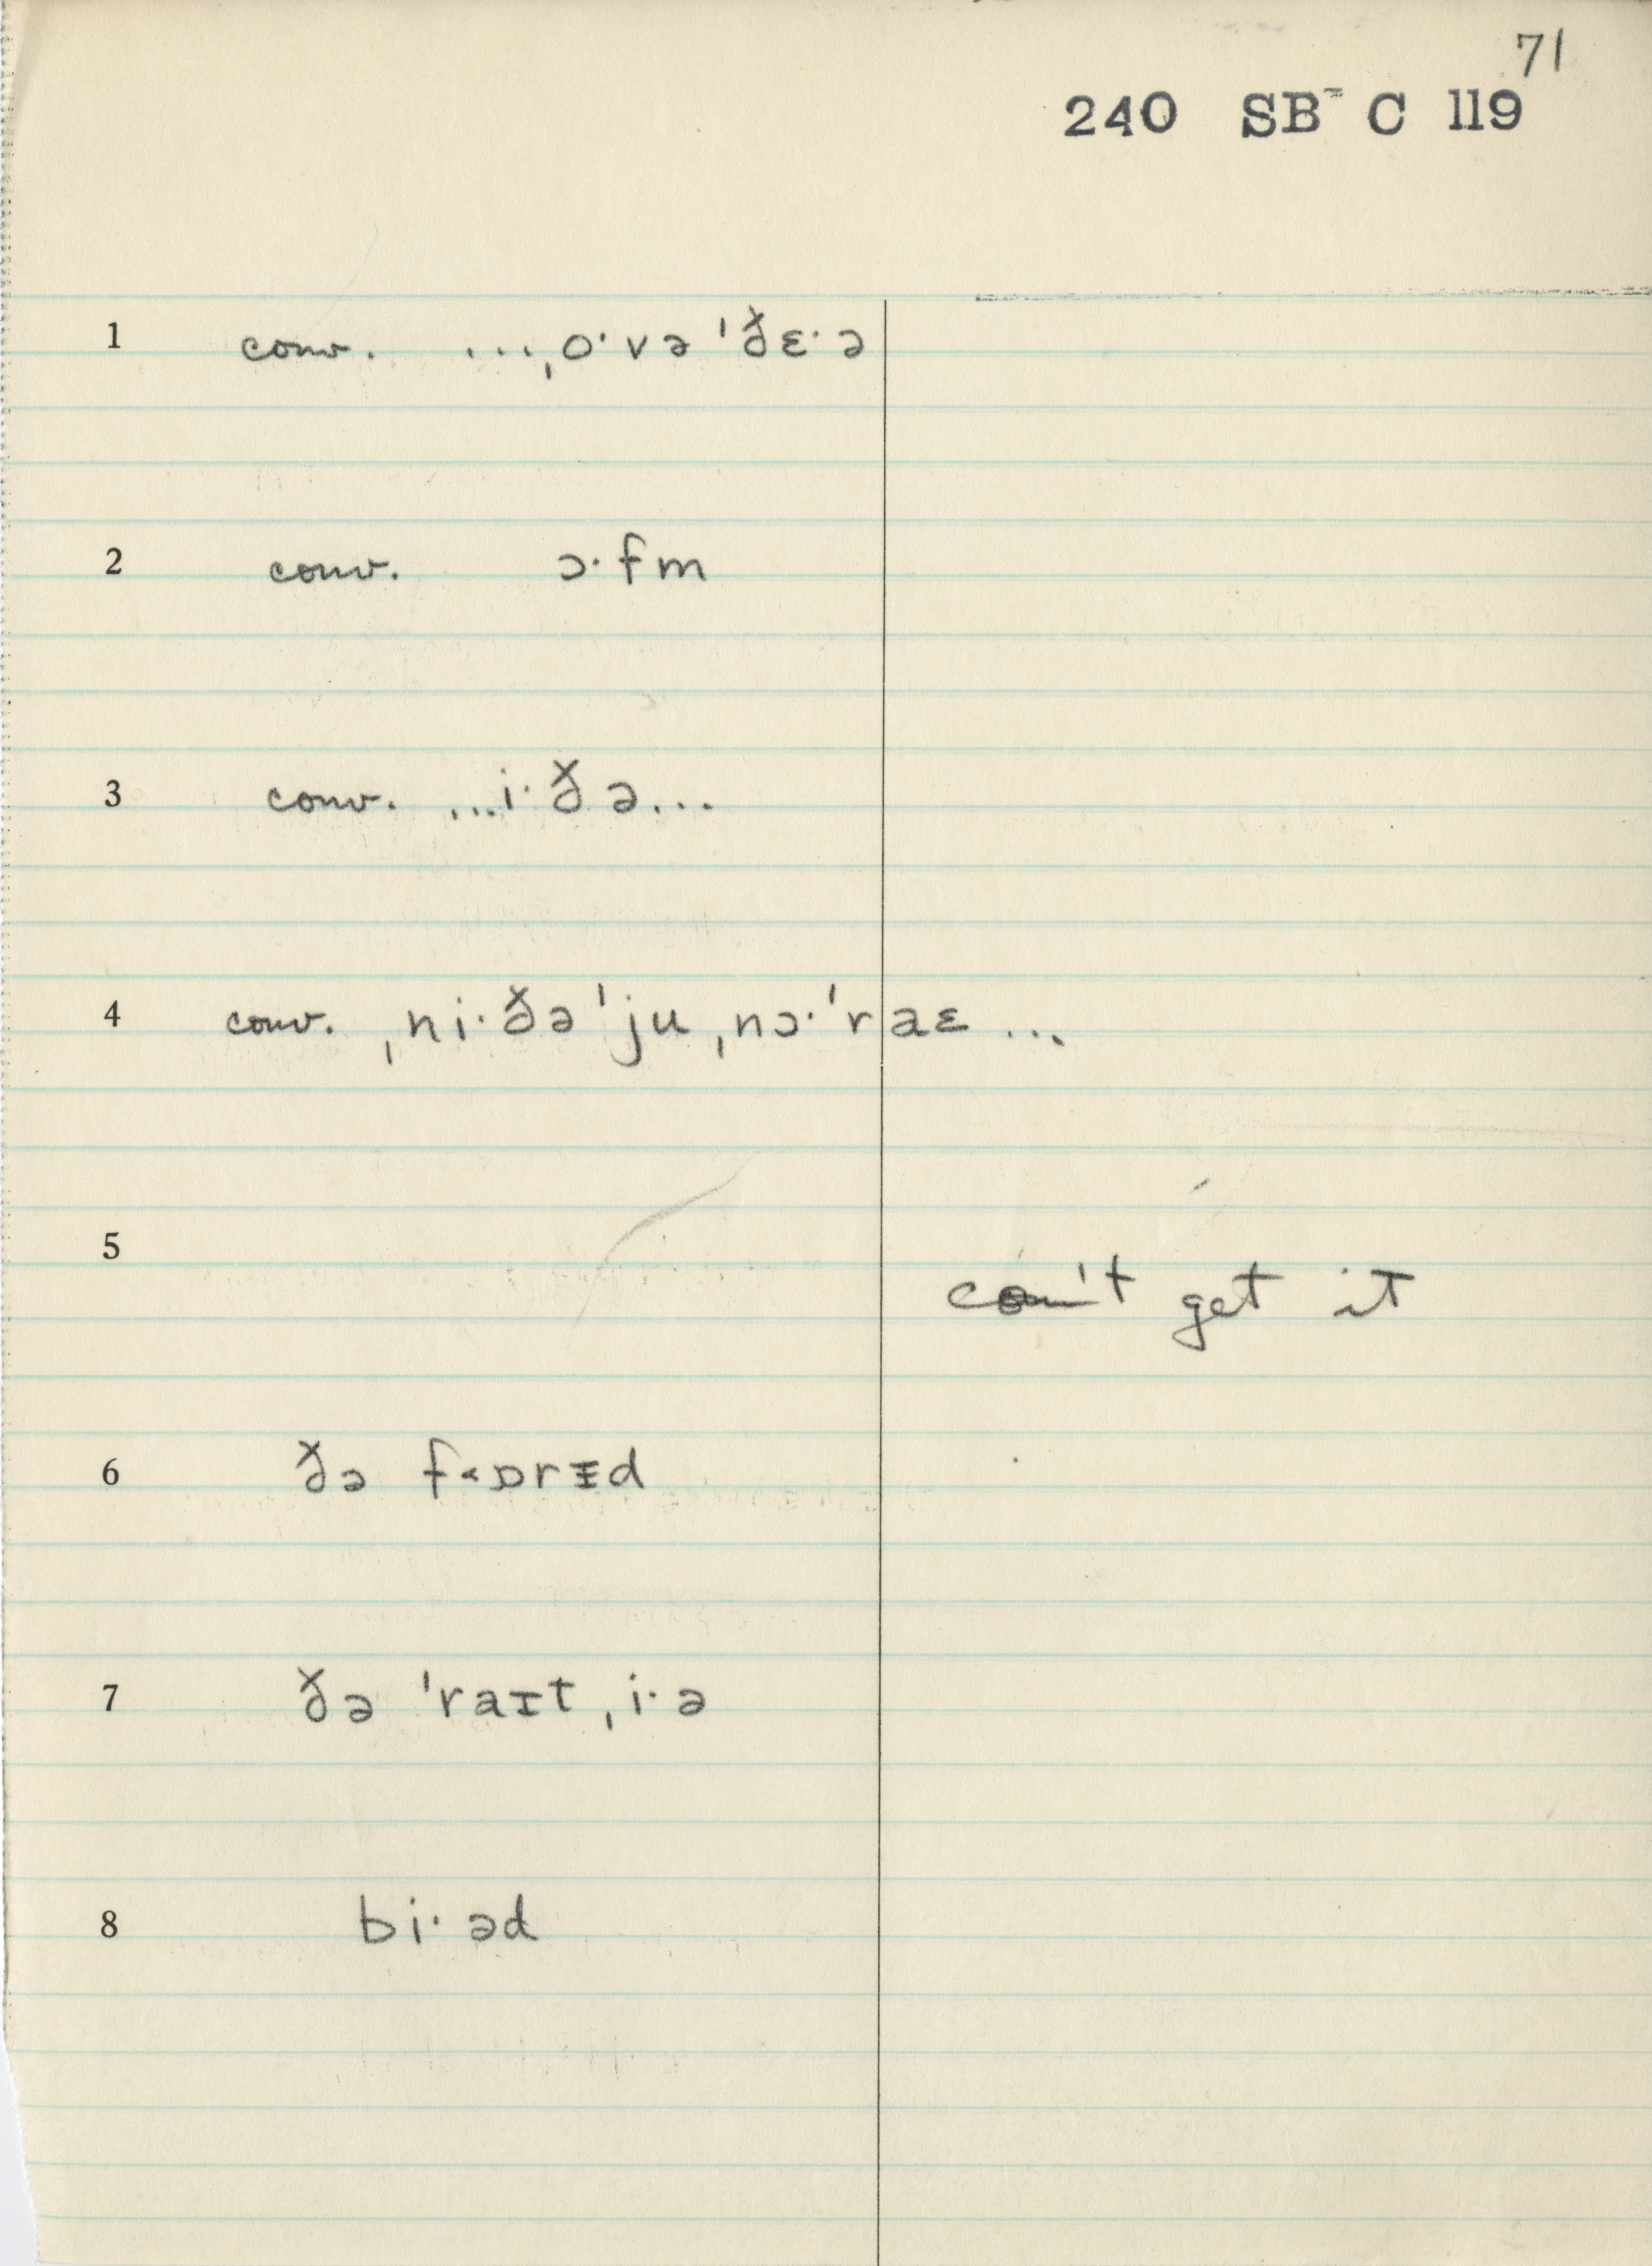 71
240 SB= C 119
1 conv. ...ˌo·və ˈðɛ·ə
2 conv. ɔ·fm
3 conv. ...i·ðə...
4 conv. ˌni·ðəˈju ˌnɔ·ˈraɛ...
5 can't get it
6 ðə f˂ɒrɪ̵d
7 ðə ˈraɪt ˌi·ə
8 bi·əd